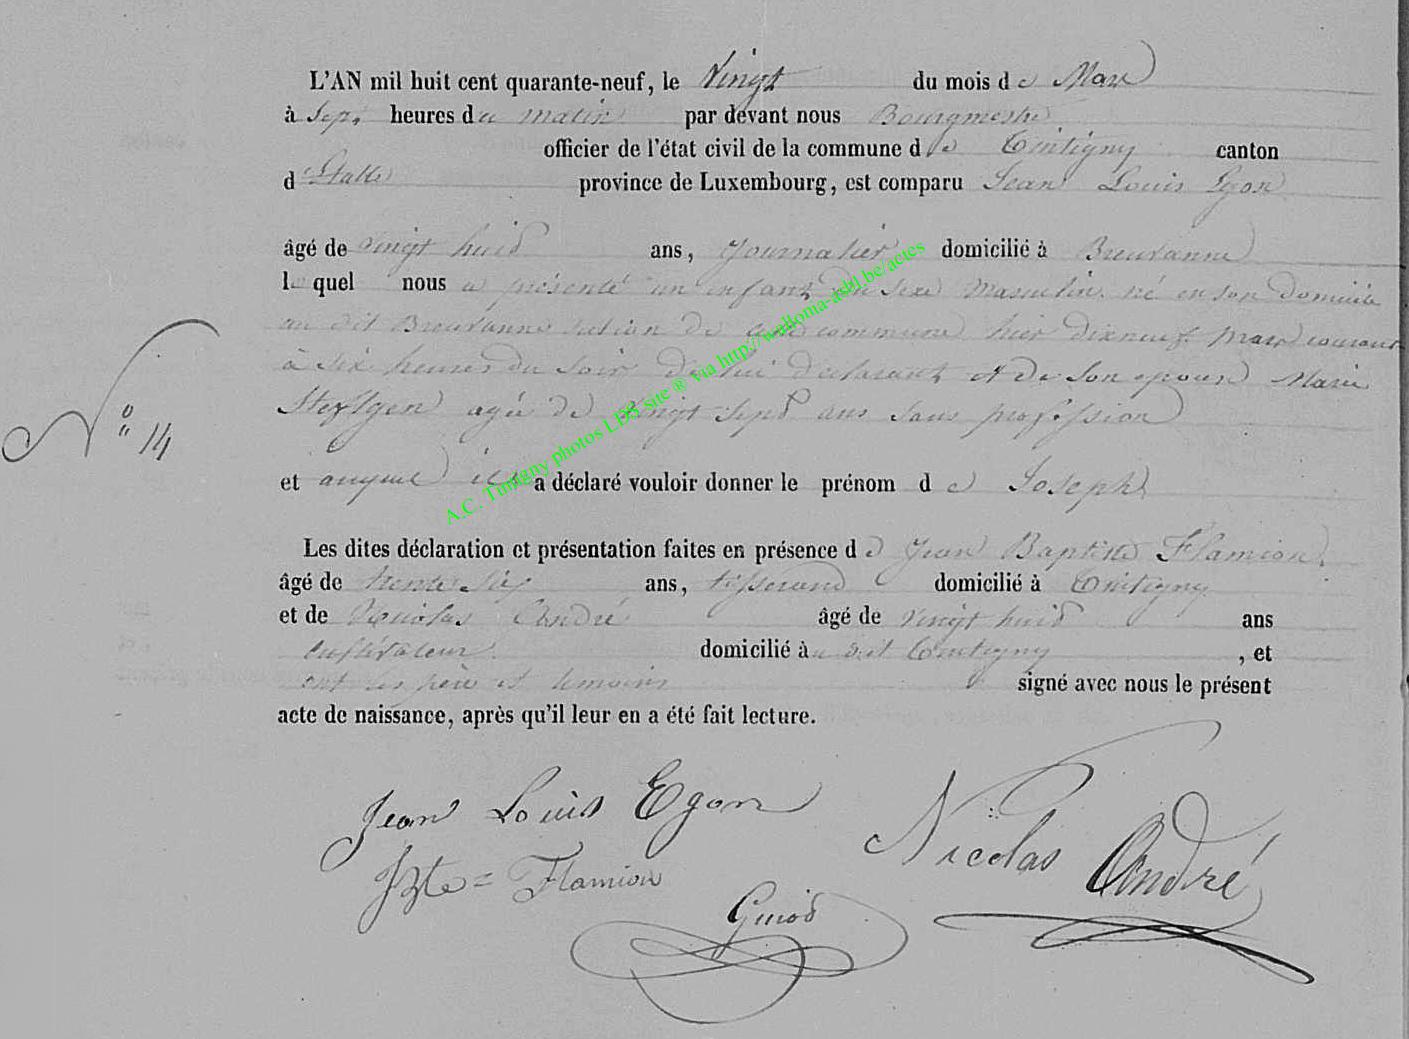 L'AN mil huit cent quarante-neuf, le Vingt du mois de Mars
à Sept heures du matin par devant nous Bourgmestre
officier de l'état civil de la commune de Tintigny canton
d'Etalle province de Luxembourg, est comparu Jean Louis Egon
âgé de vingt huid ans, Journalier domicilié à Breuvanne
lequel nous a présenté un enfant du sexe Masculin né en son domicile
au dit Breuvanne section de cette commune hier dixneuf Mars courant
à six heures du soir de lui déclarant et de son épouse Marie
agée de vingt sept ans sans profession
N° 14
et auquel il a déclaré vouloir donner le prénom de Joseph
Les dites déclaration et présentation faites en présence de Jean Baptiste Flamion
âgé de trente six ans, tisserand domicilié à Tintigny
et de Nicolas André âgé de vingt huid ans
cultivateur domicilié au dit Tintigny, et
ont les père et temoins signé avec nous le présent
acte de naissance, après qu'il leur en a été fait lecture.
Jean Louis Egon
Nicolas André
JBte = Flamion
Guiod
A.C. Tintigny photos LDS site ® via http://walloma-asbl.be/actes